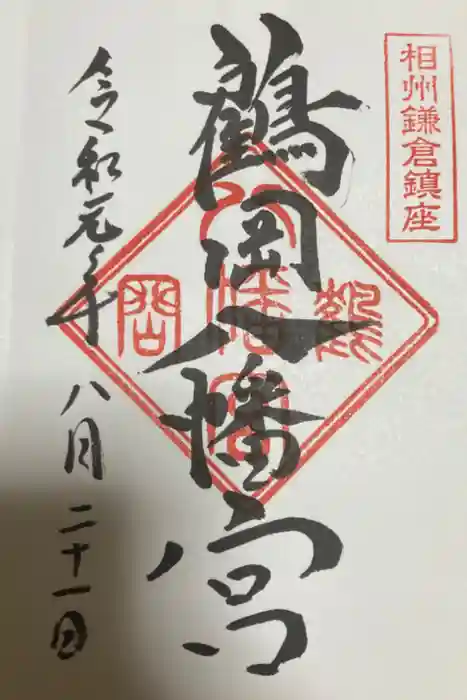 相州鎌倉鎮座
鶴岡八幡宮
令和元年八月二十一日